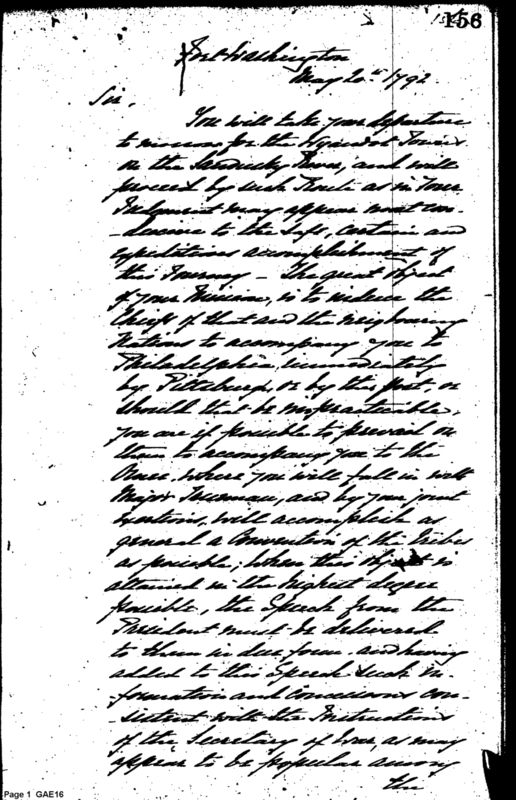 156
Fort Washington
May 20th 1792.
Sir,
You will take your departure
tomorrow for the Wyandot Towns
on the Sandusky River, and will
proceed by such Route as in Your
Judgment may appear most con-
-ducive to the safe, certain and
expeditious accomplishment of
this Journey - The great object
of your Mission, is to induce the
Chiefs of that and the neighbouring
Nations to accompany you to
Philadelphia, immediately
by Pittsburgh, or by this post, or
should that be impracticable,
you are if possible to prevail on
them to accompany you to the
where you will fall in with
Major Trueman, and by your joint
exertions, will accomplish as
general a Convention of the tribes
as possible; when this object is
attained in the highest degree
possible, the Speech from the
President must be delivered
to them in due form - and having
added to this Speech such in-
-formation and Concessions con-
-sistent with the Instructions
of the Secretary of War, as may
appear to be popular among
the
Page 1 GAE16